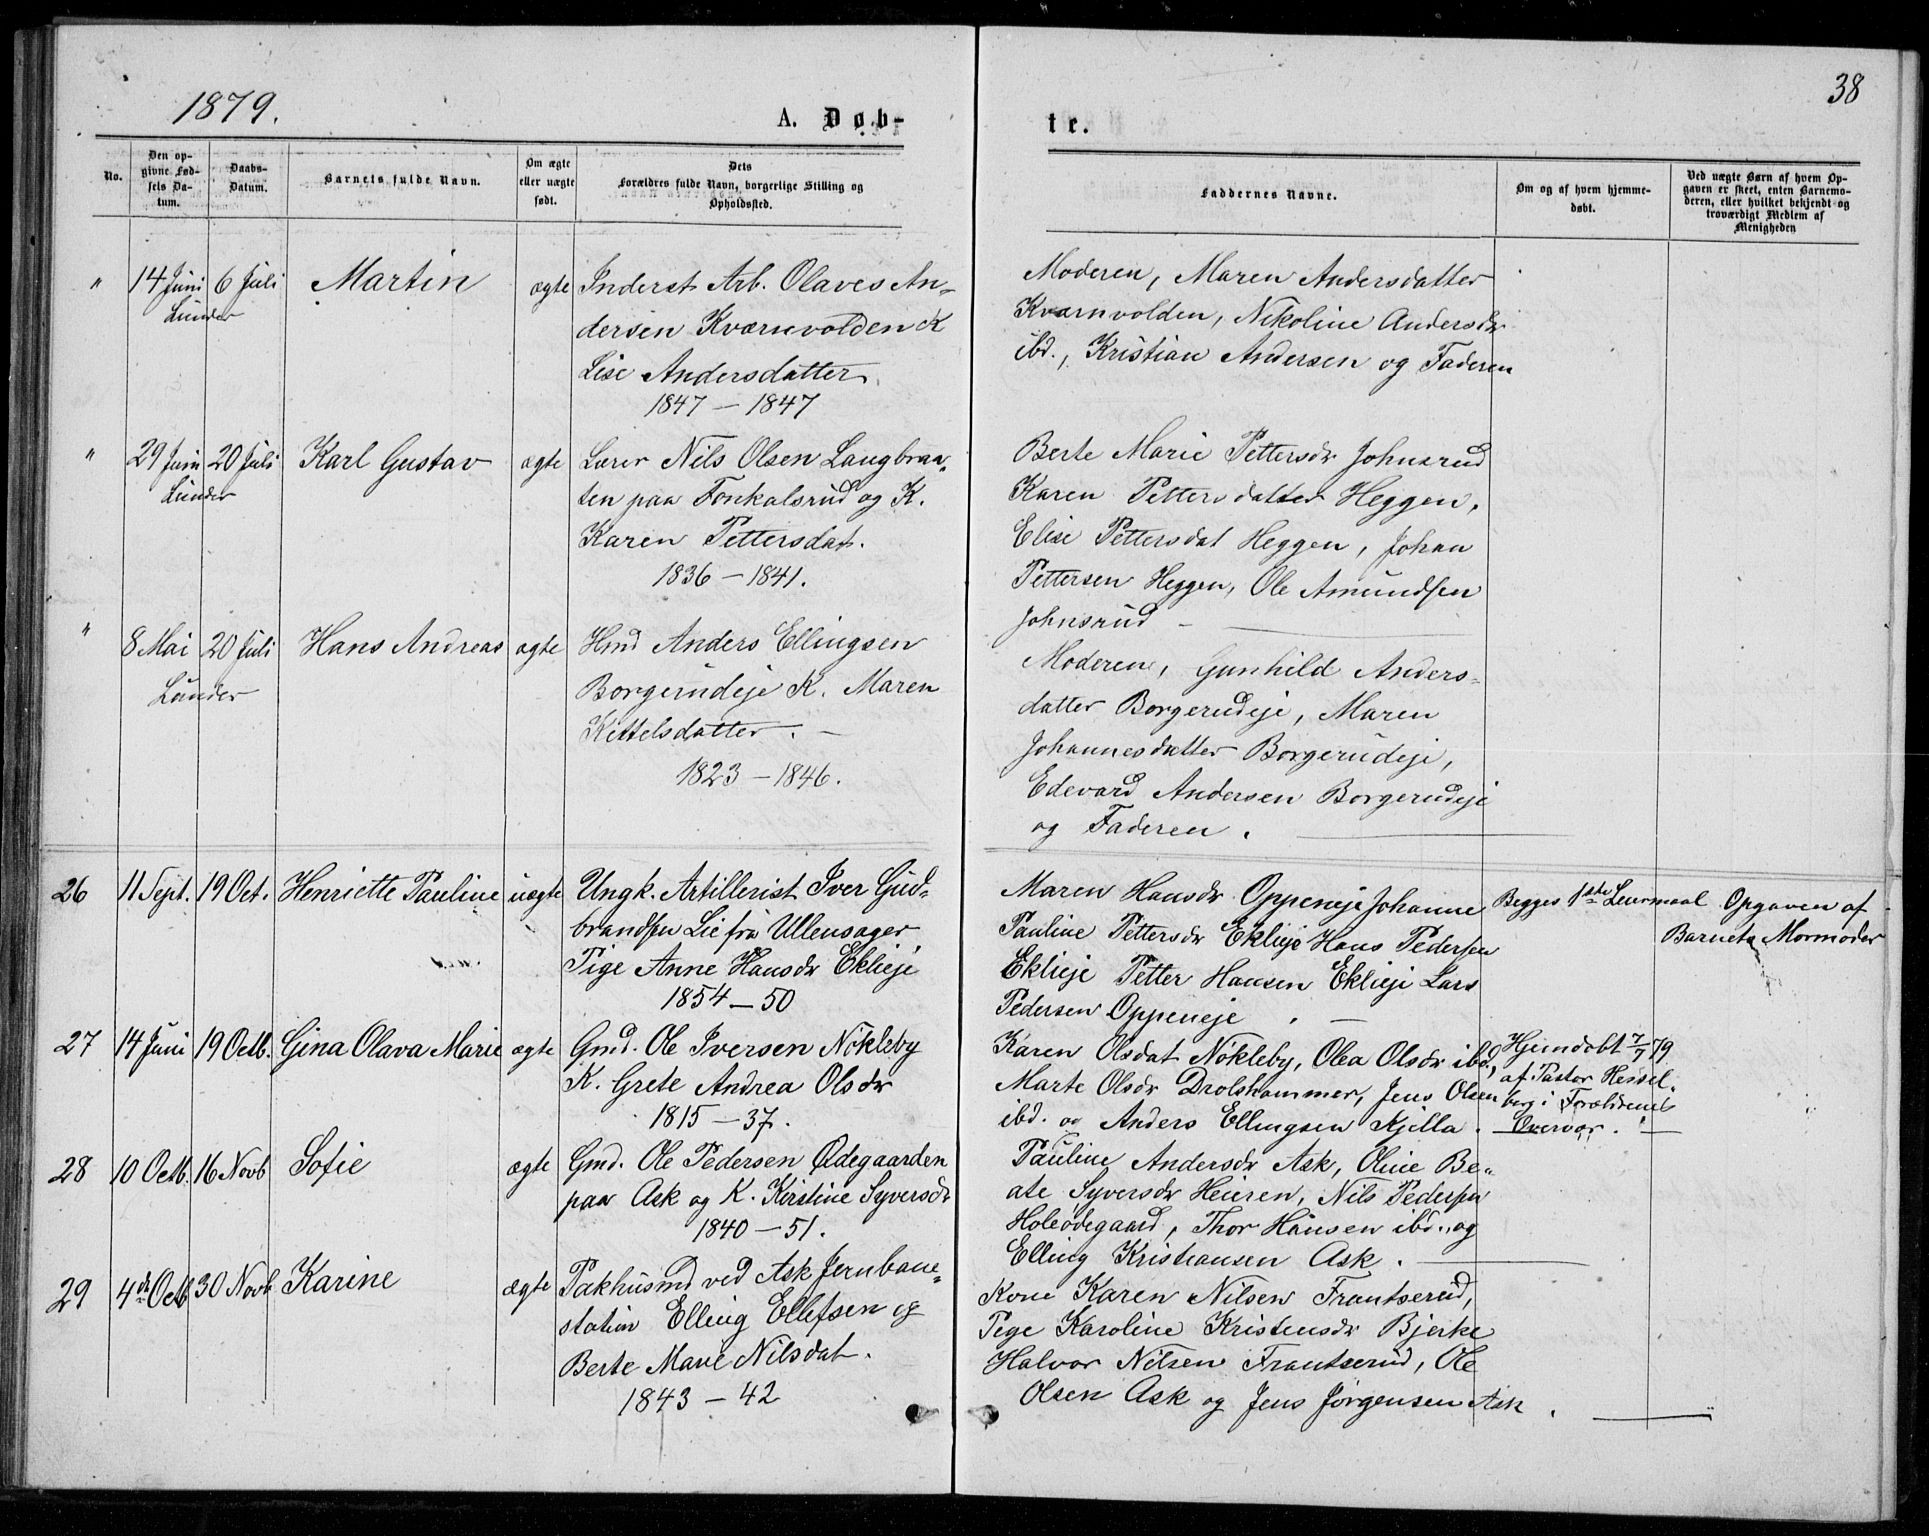 1879.
A. Døb-
te.
38
No.
Den op-
givne Fød-
sels Da-
tum.
Daabs-
Datum.
Barnets fulde Navn.
Om ægte
eller uægte
født.
Dets
Forældres fulde Navn, borgerlige Stilling og
Opholdssted.
Faddernes Navne.
Om og af hvem hjemme-
døbt.
Ved uægte Børn af hvem Op-
gaven er skeet, enten Barnemo-
deren, eller hvilket bekjendt og
troværdigt Medlem af
Menigheden
" 14 Juni 6 Juli Martin ægte Inderst Arb. Olaves An-
Lunder
dersen Kværnvolden K
Lise Andersdatter.
1847 - 1847
Moderen, Maren Andersdatter
Kværnvolden, Nikoline Andersdr
ibd., Kristian Andersen og Faderen
" 29 Juni 20 Juli Karl Gustav ægte Lærer Nils Olsen Langbraa-
Lunder
ten paa Fonkalsrud og K.
Karen Pettersdat.
1836 - 1841.
Berte Marie Pettersdr Johnsrud
Karen Pettersdatter Heggen,
Elise Pettersdat Heggen, Johan
Pettersen Heggen, Ole Amundsen
Johnsrud -
" 8 Mai 20 Juli Hans Andreas ægte Hmd Anders Ellingsen
Lunder
Borgerudeje K. Maren
Kittelsdatter. -
1823 - 1846.
Moderen, Gunhild Anders-
datter Borgerudeje, Maren
Johannesdatter Borgerudeje,
Edevard Andersen Borgerudeje
og Faderen.
26 11 Sept. 19 Oct. Henriette Pauline uægte Ungk. Artillerist Iver Gud-
brandsen Lie fra Ullensager
Pige Anne Hansdr Eklieje
1854 - 50
Maren Hansdr Oppeneje Johanne
Pauline Pettersdr Eklieje Hans Pedersen
Eklieje Petter Hansen Eklieje Lars
Pedersen Oppeneje . -
Begges 1ste Leiermaal Opgaven af
Barnets Mormoder
27 14 Juni 19 Octb. Gina Olava Marie ægte Gmd. Ole Iversen Nökleby
K. Grete Andrea Olsdr
1815 - 37.
Karen Olsdat Nökleby, Olea Olsdr ibd.,
Marte Olsdr Drolshammer, Jens Olsen
ibd. og Anders Ellingsen Kjella.
Hjemdøbt 7/7 79
af Pastor Hessel-
berg i Forældrenes
Overvær.
28 10 Octb. 16 Novb Sofie ægte Gmd. Ole Pedersen Ødegaarden
paa Ask og K. Kirstine Syversdr
1840 - 51.
Pauline Andersdr Ask, Oline Be-
ate Syversdr Heieren, Nils Pedersen
Holeødegaard, Thor Hansen ibd. og
Elling Kristiansen Ask.
29 4de Octb 30 Novb Karine ægte Pakhusmd ved Ask Jernbane-
station Elling Ellefsen og
Berte Marie Nilsdat.
1843 - 42
Kone Karen Nilsen Frantserud,
Pige Karoline Kristensdr Bjerke
Halvor Nilsen Frantserud, Ole
Olsen Ask og Jens Jörgensen Ask.